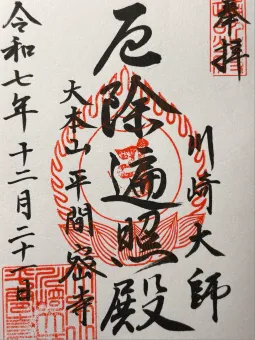 奉拝
川崎大師
厄除遍照殿
大本山平間寺
令和七年十二月二十一日